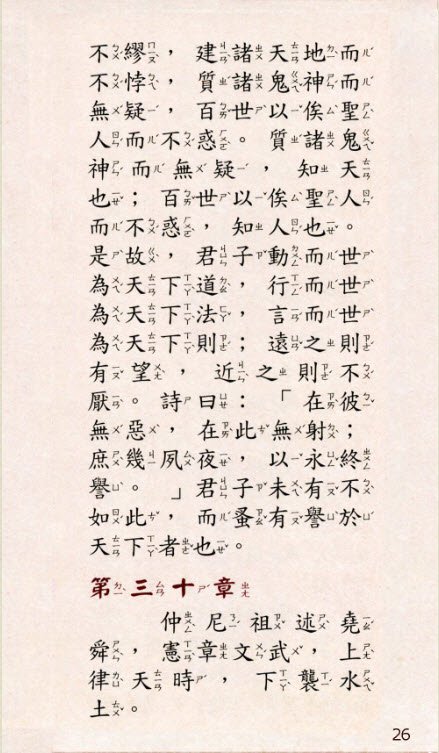 不繆，建諸天地而
不悖，質諸鬼神而
無疑，百世以俟聖
人而不惑。質諸鬼
神而無疑，知天
也；百世以俟聖人
而不惑，知人也。
是故，君子動而世
為天下道，行而世
為天下法，言而世
為天下則；遠之則
有望，近之則不
厭。詩曰：「在彼
無惡，在此無射；
庶幾夙夜，以永終
譽。」君子未有不
如此，而蚤有譽於
天下者也。
第三十章
仲尼祖述堯
舜，憲章文武，上
律天時，下襲水
土。
26